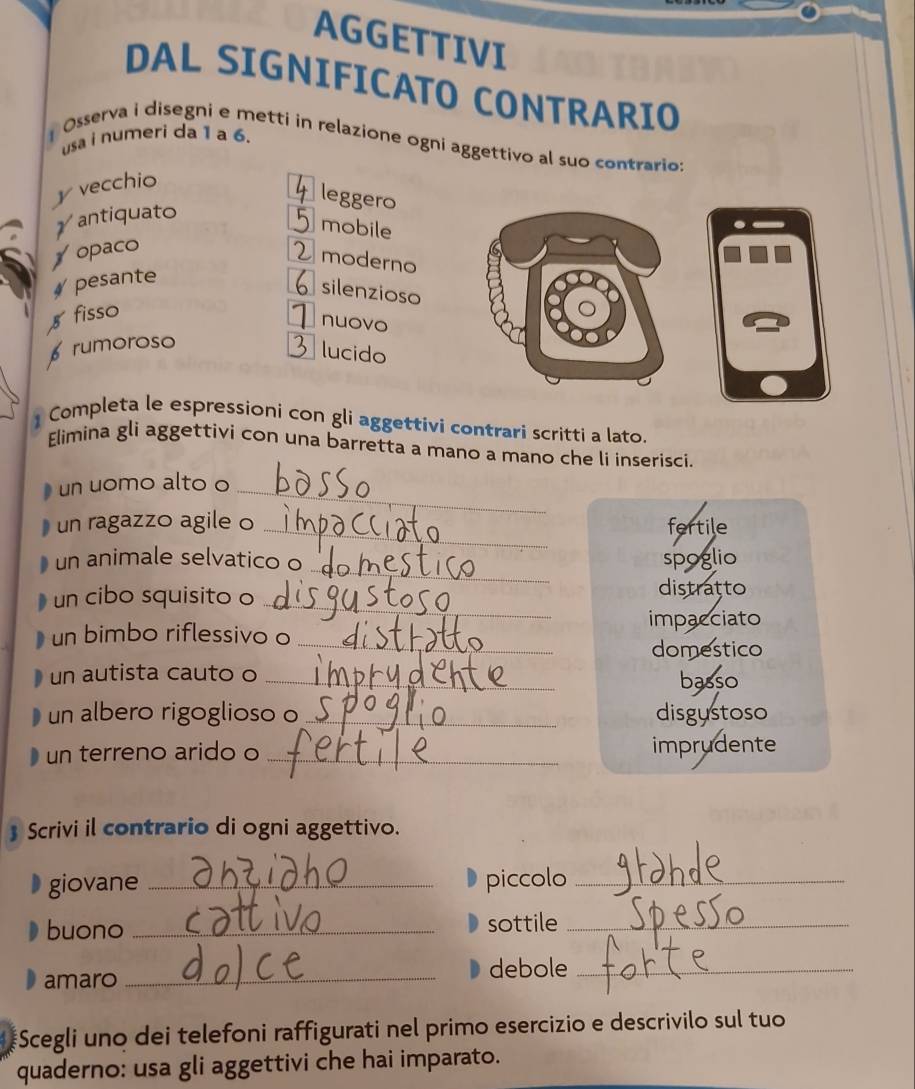 AGGETTIVI
DAL SIGNIFICATO CONTRARIO
1 Osserva i disegni e metti in relazione ogni aggettivo al suo contrario:
usa i numeri da 1 a 6.
1 vecchio
2 antiquato
3 opaco
4 pesante
5 fisso
6 rumoroso
4 leggero
5 mobile
2 moderno
6 silenzioso
1 nuovo
3 lucido
2 Completa le espressioni con gli aggettivi contrari scritti a lato.
Elimina gli aggettivi con una barretta a mano a mano che li inserisci.
un uomo alto o basso
un ragazzo agile o impacciato
un animale selvatico o domestico
un cibo squisito o disgustoso
un bimbo riflessivo o distratto
un autista cauto o imprudente
un albero rigoglioso o spoglio
un terreno arido o fertile
fertile
spoglio
distratto
impacciato
domestico
basso
disgustoso
imprudente
3 Scrivi il contrario di ogni aggettivo.
giovane anziano
piccolo grande
buono cattivo
sottile spesso
amaro dolce
debole forte
4 Scegli uno dei telefoni raffigurati nel primo esercizio e descrivilo sul tuo
quaderno: usa gli aggettivi che hai imparato.